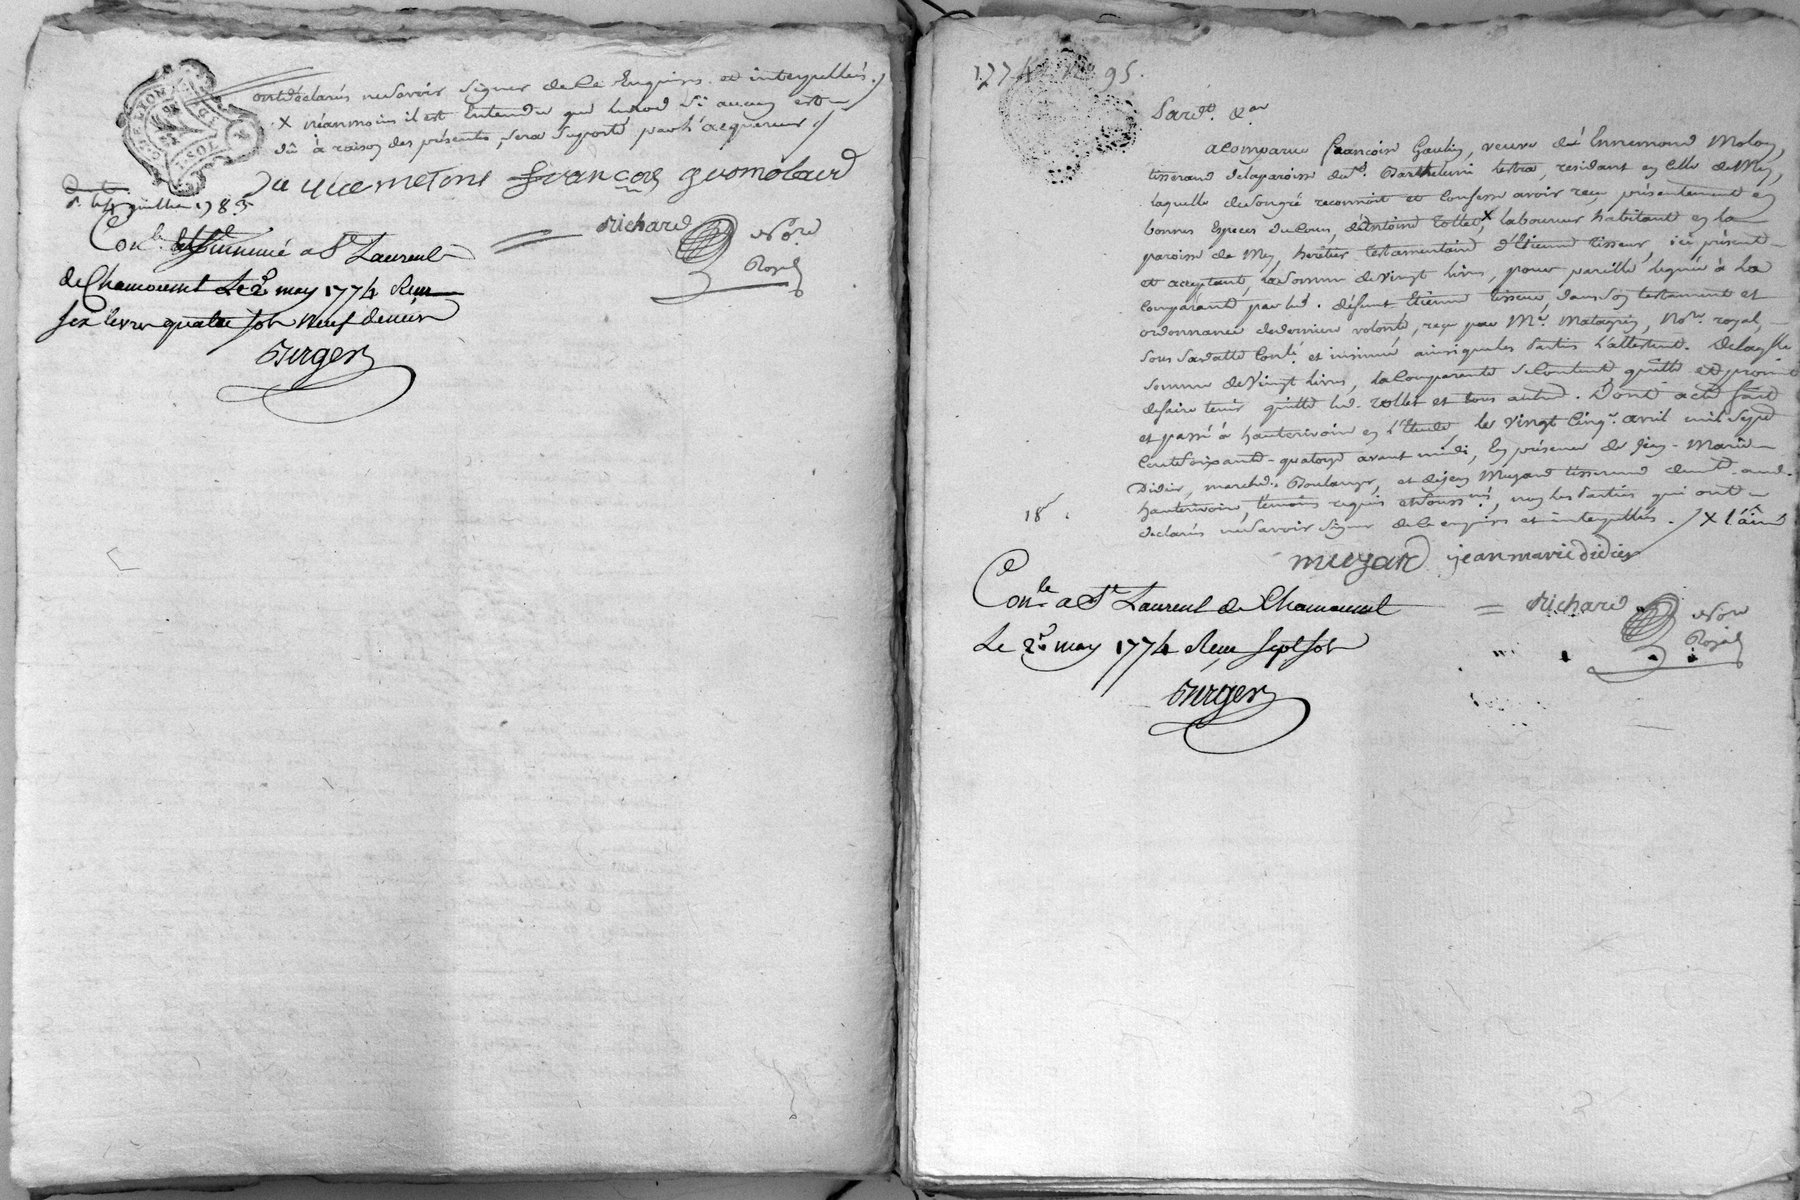 ont déclarés ne savoir signer de ce Enquiris et interpellés ./
x néanmoins il est entendu que lu si aucun est
dû à raison des présentes, sera suporté par l'acquereur ./
françois guomolard
1783
Richard Nore
Royal
Con.le et Insinué a St Laurent
de Chamousset Le 2e may 1774 Reçu
six livres quatre sols Neuf deniers
Burger
1774 No 95.
Pard.t X.an
a comparue francoise Goulin, veuve de Ennemond Molon,
tisserand de la paroisse de St. Barthelemi lestra, residant en celle de Mey,
laquelle de son gré reconnoit et confesse avoir reçu présentement en
bonnes espèces de cours, d'Antoine rollet x, laboureur habitant en la
paroisse de Mey, heritier testamentaire d'Etienne tisseur, ici présent
et acceptant, la somme de vingt livres, pour pareille leguée à la
comparante par led. défunt Etienne tisseur, dans son testament et
ordonnance de derniere volonté, reçu par Me. Matagrin, No.re royal,
sous sa datte Con.lé et insinué ainsi que les parties l'attestent. De laq.lle
somme de vingt livres, la comparante se contente quitte et promet
de faire tenir quitte led. rollet et tous autres. Dont acte fait
et passé à hauterivoire en l'Etude le vingt cinq.e avril mil sept
cent soixante-quatorze avant midi, en présence de Jean-Marie
Didier, marchd. Boulanger, et de Jean Muyard tisserand dud.
hauterivoire, temoins requis et souss.nés, non les parties qui ont
declarés ne savoir signer de ce enquiris et interpellés. / x l'ainé
18
muyard jean marie didier
Con.le a St Laurent de Chamousset
Richard Nore
Royal
Le 2e may 1774 Reçu sept sols
Burger